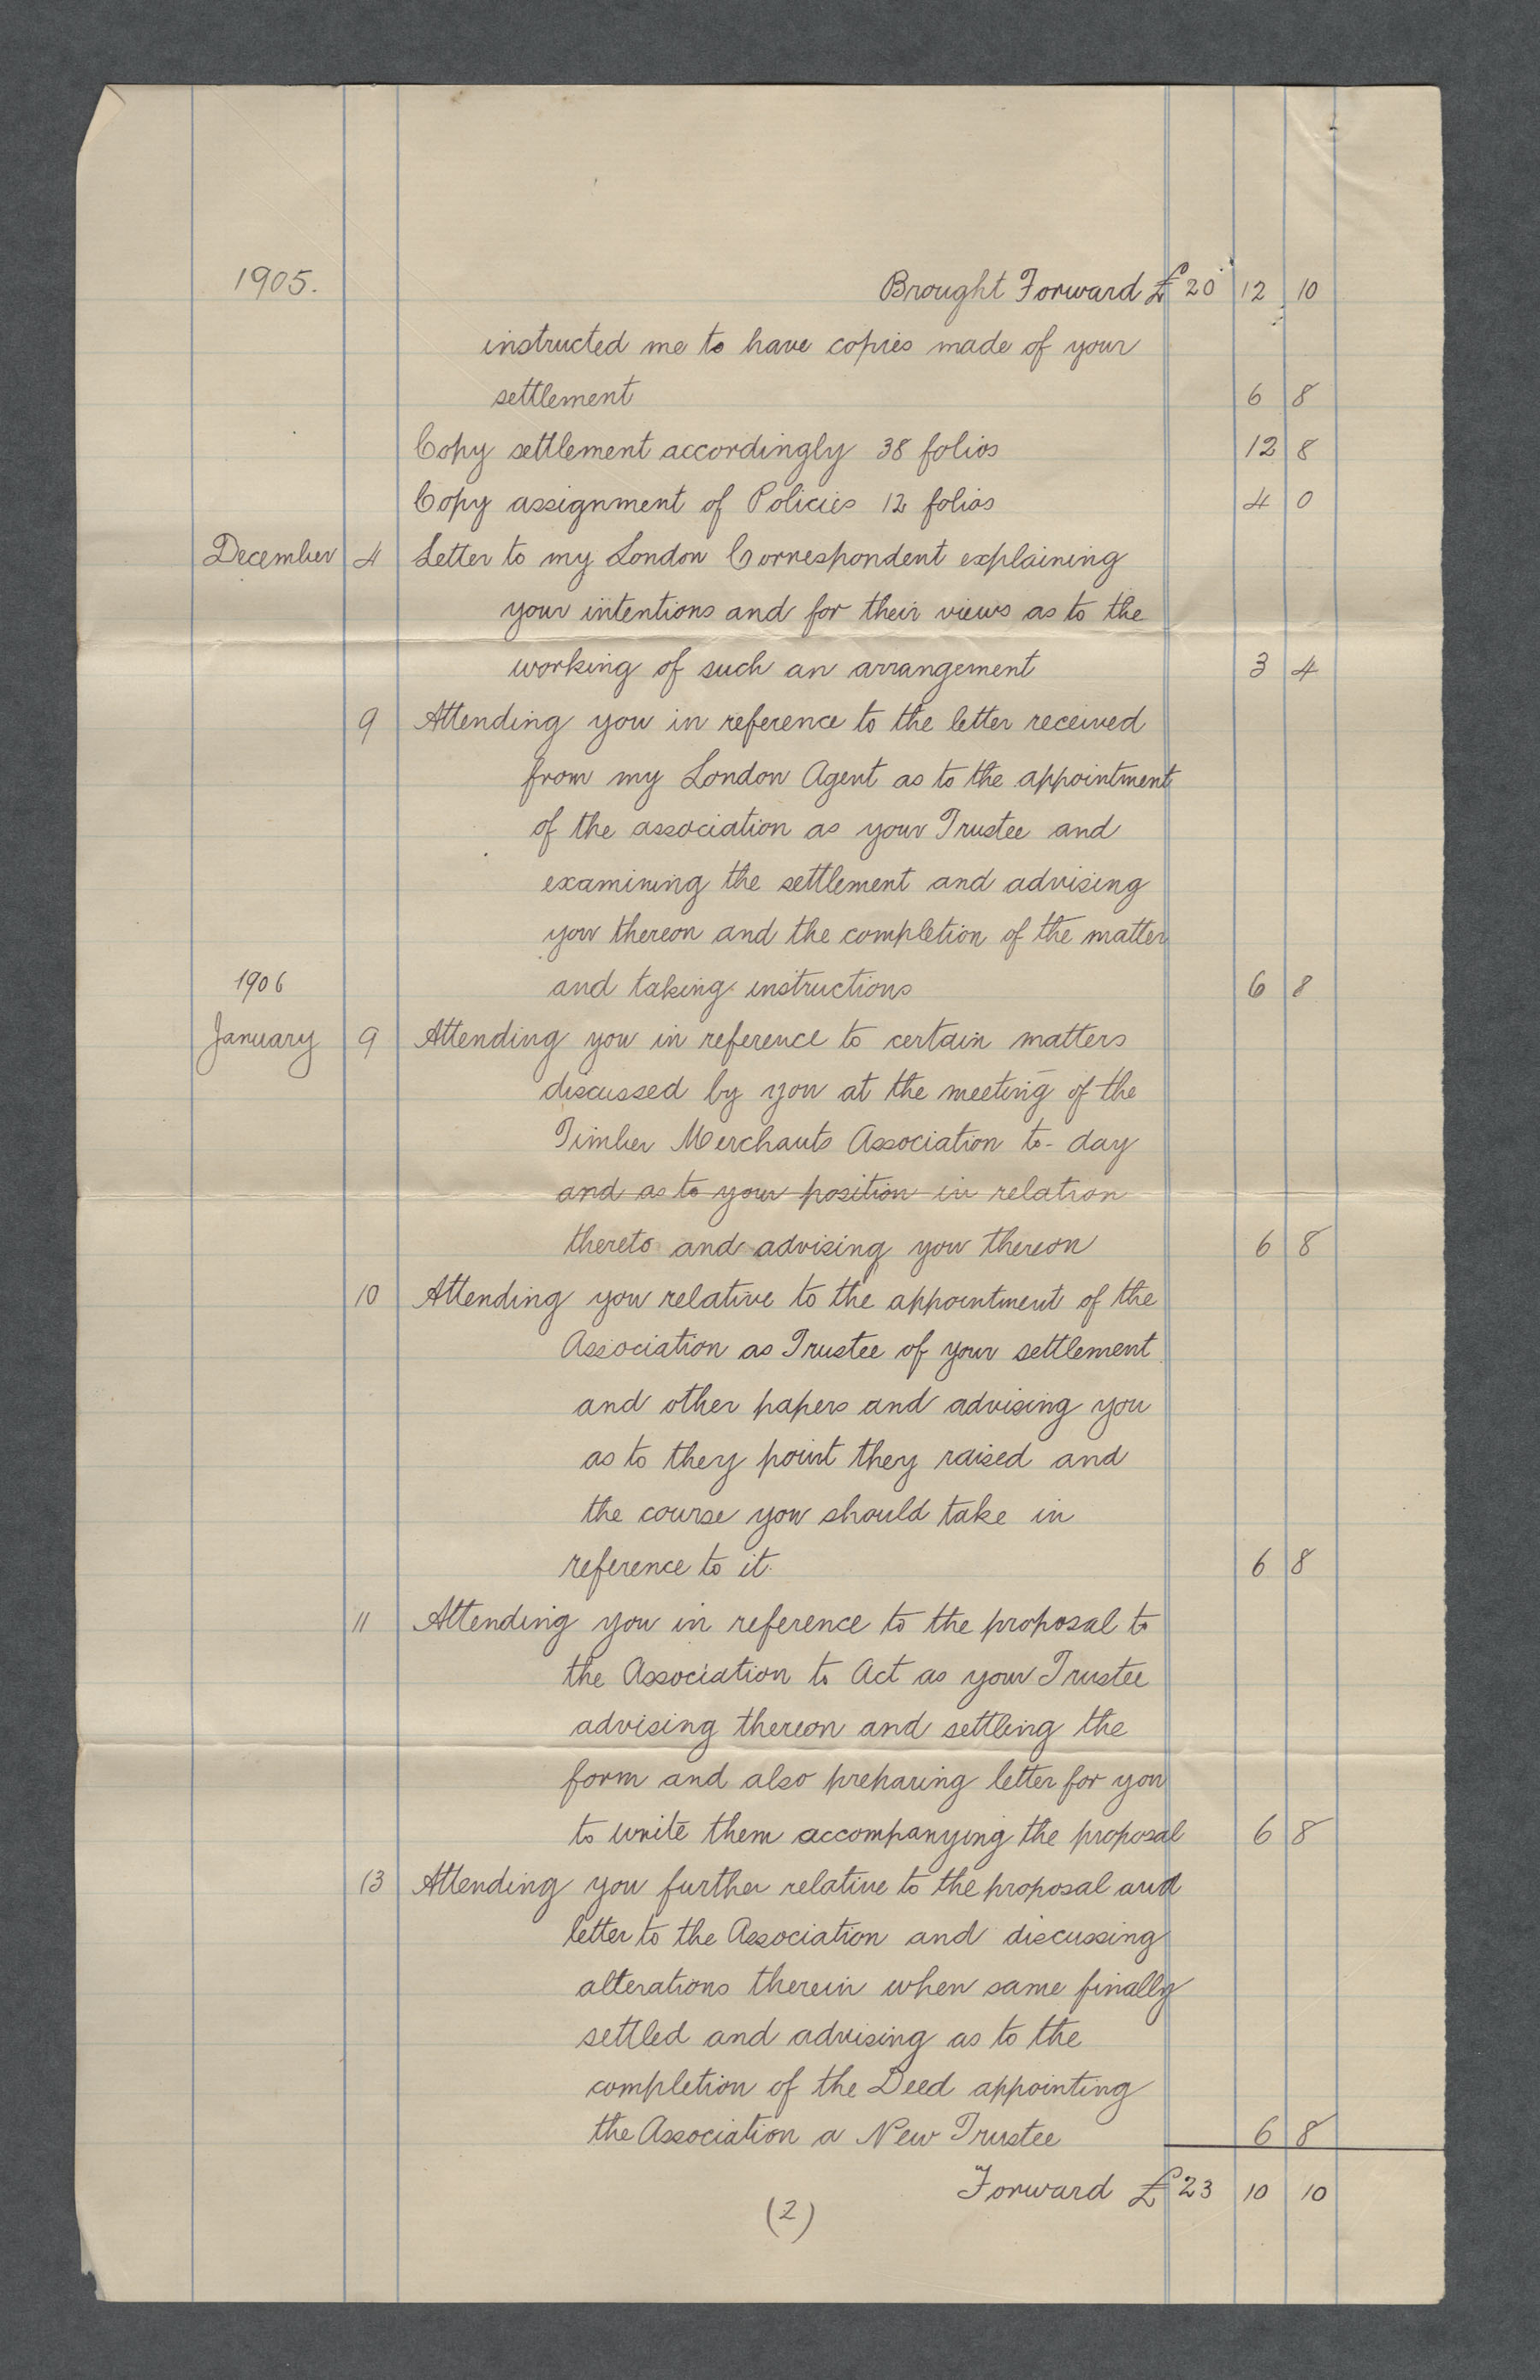 1905. Brought Forward £ 20 12 10
instructed me to have copies made of your
settlement 6 8
Copy settlement accordingly 38 folios 12 8
Copy assignment of Policies 12 folios 4 0
December 4 Letter to my London Correspondent explaining
your intentions and for their views as to the
working of such an arrangement 3 4
9 Attending you in reference to the letter received
from my London Agent as to the appointment
of the association as your Trustee and
examining the settlement and advising
you thereon and the completion of the matter
1906 and taking instructions 6 8
January 9 Attending you in reference to certain matters
discussed by you at the meeting of the
Timber Merchants Association to-day
and as to your position in relation
thereto and advising you thereon 6 8
10 Attending you relative to the appointment of the
Association as Trustee of your settlement
and other papers and advising you
as to they point they raised and
the course you should take in
reference to it. 6 8
11 Attending you in reference to the proposal to
the Association to Act as your Trustee
advising thereon and settling the
form and also preparing letter for you
to write them accompanying the proposal 6 8
13 Attending you further relative to the proposal and
letter to the Association and discussing
alterations therein when same finally
settled and advising as to the
completion of the Deed appointing
the Association a New Trustee 6 8
Forward £ 23 10 10
(2)